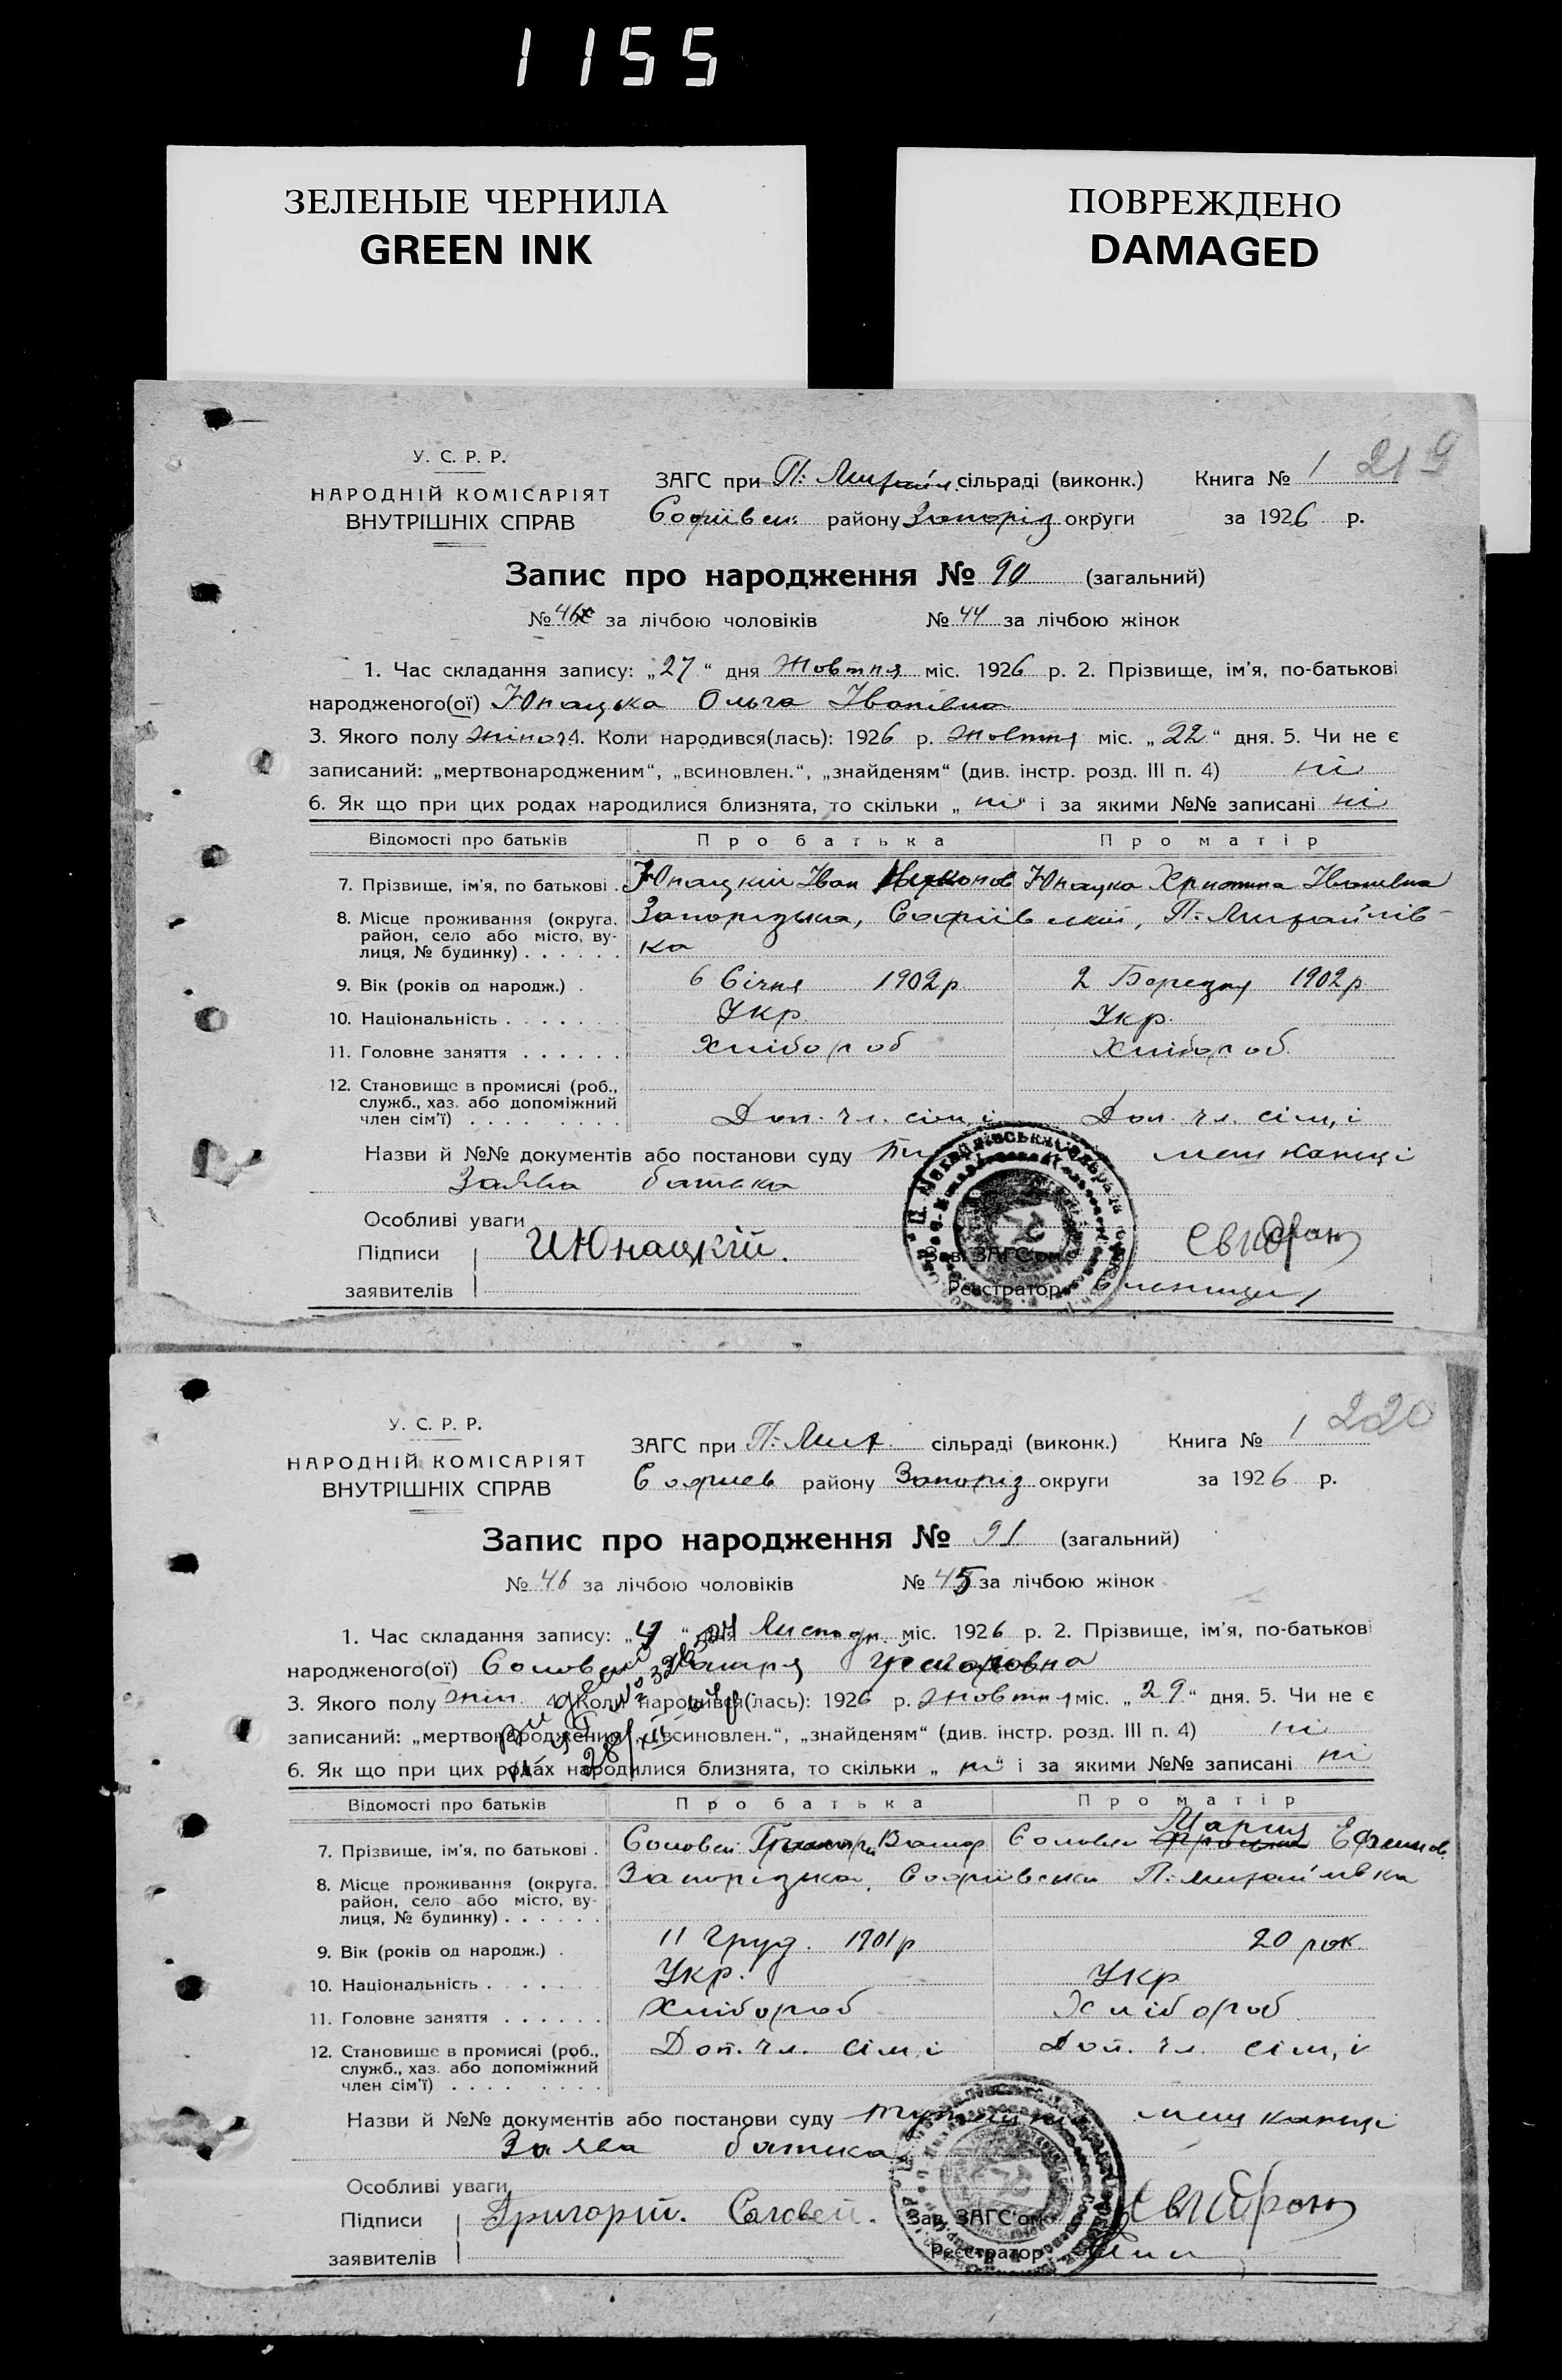 1155
ЗЕЛЕНЫЕ ЧЕРНИЛА
GREEN INK
ПОВРЕЖДЕНО
DAMAGED
219
У. С. Р. Р.
НАРОДНІЙ КОМІСАРІЯТ
ВНУТРІШНІХ СПРАВ
ЗАГС при П. Михайл. сільраді (виконк.) Книга № 1
Софіївськ району Запоріз округи за 1926 р.
Запис про народження № 90 (загальний)
№ 46 за лічбою чоловіків № 44 за лічбою жінок
1. Час складання запису: „27“ дня Жовтня міс. 1926 р. 2. Прізвище, ім'я, по-батькові
народженого(ої) Юнацька Ольга Іванівна
3. Якого полу жіноч 4. Коли народився(лась): 1926 р. жовтня міс. „22“ дня. 5. Чи не є
записаний: „мертвонародженим“, „всиновлен.“, „знайденям“ (див. інстр. розд. III п. 4) ні
6. Як що при цих родах народилися близнята, то скільки „ні“ і за якими №№ записані ні
Відомості про батьків Про батька Про матір
7. Прізвище, ім'я, по батькові . Юнацкий Іван Юнацка Христина Іванівна
8. Місце проживання (округа, район, село або місто, вулиця, № будинку) . . . . . . Запорізька, Софіївської, П.-Михайлівка
9. Вік (років од народж.) . 6 Січня 1902 р 2 Березня 1902 р
10. Національність . . . . . . . Укр. Укр.
11. Головне заняття . . . . . . Хлібороб Хлібороб.
12. Становище в промислі (роб., служб., хаз. або допоміжний член сім'ї) . . . . . . . . . Доп. чл. сім,і Доп. чл. сім,і
Назви й №№ документів або постанови суду мешканці
Заява батька
Особливі уваги
Підписи И Юнацкій.
Зав. ЗАГС'ом
заявителів
Реєстратор
220
У. С. Р. Р.
НАРОДНІЙ КОМІСАРІЯТ
ВНУТРІШНІХ СПРАВ
ЗАГС при П.-Мих. сільраді (виконк.) Книга № 1
Софиев району Запоріз округи за 1926 р.
Запис про народження № 91 (загальний)
№ 46 за лічбою чоловіків № 45 за лічбою жінок
1. Час складання запису: „4“ дня Листопд. міс. 1926 р. 2. Прізвище, ім'я, по-батькові
народженого(ої) Соловей
3. Якого полу жін. 4. Коли народився(лась): 1926 р. жовтня міс. „29“ дня. 5. Чи не є
записаний: „мертвонародженим“, „всиновлен.“, „знайденям“ (див. інстр. розд. III п. 4) ні
6. Як що при цих родах народилися близнята, то скільки „ні“ і за якими №№ записані ні
Відомості про батьків Про батька Про матір
7. Прізвище, ім'я, по батькові . Соловей Григорій Соловей Мария Ефимов.
8. Місце проживання (округа, район, село або місто, вулиця, № будинку) . . . . . . Запорізька, Софиївська П. Михайлівка
9. Вік (років од народж.) . 11 Груд. 1901 р 20 рок
10. Національність . . . . . . . Укр. Укр
11. Головне заняття . . . . . . Хлібороб Хлібороб
12. Становище в промислі (роб., служб., хаз. або допоміжний член сім'ї) . . . . . . . . . Доп. чл. сім,і Доп. чл. сім,і
Назви й №№ документів або постанови суду мешканці
Заява батька
Особливі уваги
Підписи Григорій. Соловей.
Зав. ЗАГС'ом
заявителів
Реєстратор